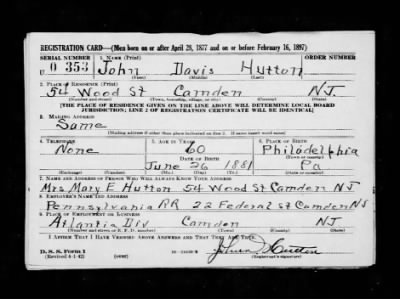 REGISTRATION CARD—(Men born on or after April 28, 1877 and on or before February 16, 1897)
SERIAL NUMBER 1. Name (Print) ORDER NUMBER
U 0 353 John Davis Hutton
(First) (Middle) (Last)
2. Place of Residence (Print)
54 Wood St Camden NJ
(Number and street) (Town, township, village, or city) (County) (State)
[THE PLACE OF RESIDENCE GIVEN ON THE LINE ABOVE WILL DETERMINE LOCAL BOARD
JURISDICTION; LINE 2 OF REGISTRATION CERTIFICATE WILL BE IDENTICAL]
3. Mailing Address
Same
[Mailing address if other than place indicated on line 2. If same insert word same]
4. Telephone 5. Age in Years 6. Place of Birth
None 60 Philadelphia
Date of Birth (Town or county)
June 26 1881 Pa
(Mo.) (Day) (Yr.) (State or country)
7. Name and Address of Person Who Will Always Know Your Address
Mrs Mary E Hutton 54 Wood St Camden NJ
8. Employer's Name and Address
Pennsylvania RR 22 Federal St Camden NJ
9. Place of Employment or Business
Atlantic Div Camden NJ
(Number and street or R. F. D. number) (Town) (County) (State)
I Affirm That I Have Verified Above Answers and That They Are True.
D. S. S. Form 1
(Revised 4-1-42) (over) John D Hutton
(Registrant's signature)